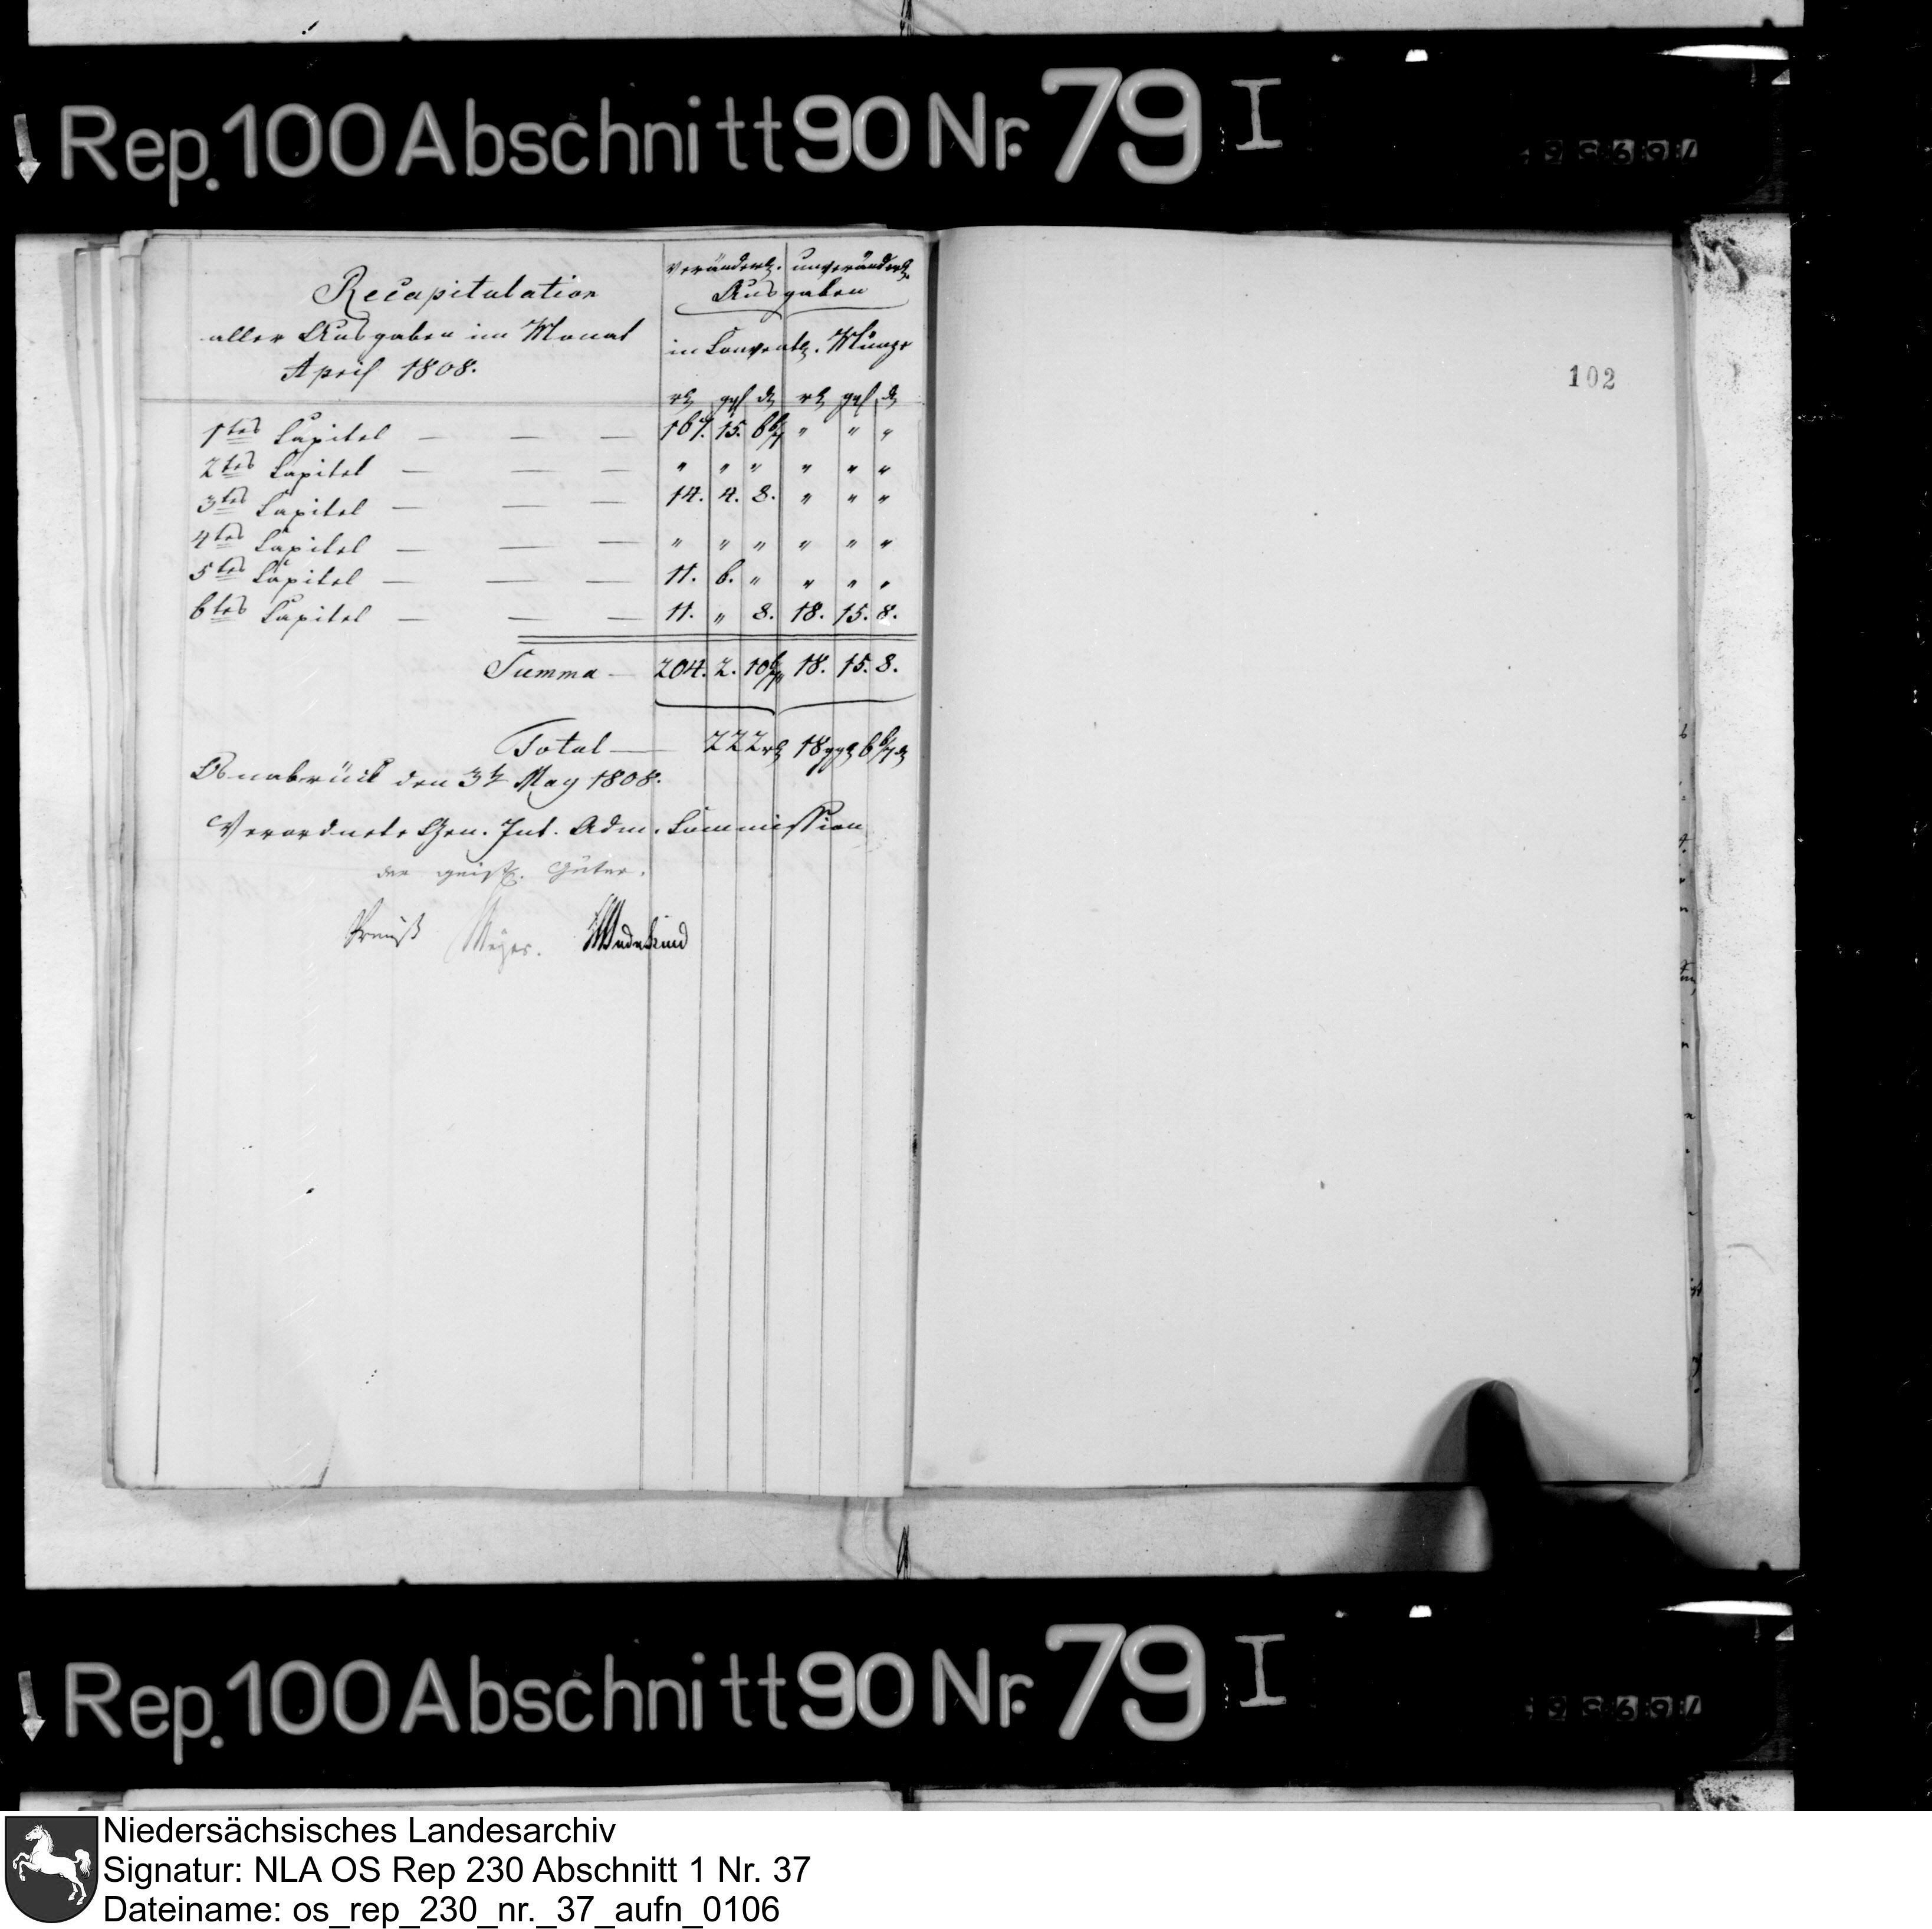 Rep. 100 Abschnitt 90 Nr. 79 I
Recapitulation
aller Ausgaben im Monat
April 1808.
veränderl. unveränderl.
Ausgaben
in Convent. Münze
rt ggl d rt ggl d
1tes Capitel — — — 167. 15. 6 6/7 " " "
2tes Capitel — — — " " " " " "
3tes Capitel — — — 14. 4. 8. " " "
4tes Capitel — — — " " " " " "
5tes Capitel — — — 11. 6. " " " "
6tes Capitel — — — 11. " 8. 18. 15. 8.
Summa — 204. 2. 10 6/7 18. 15. 8.
Total — 222 rt 18 ggl 6 6/7 d
Osnabrück den 3t May 1808.
Verordnete Gen. Int. Adm. Commission
der geistl. Güter.
Preuß Meyer. Wedekind
102
Rep. 100 Abschnitt 90 Nr. 79 I
Niedersächsisches Landesarchiv
Signatur: NLA OS Rep 230 Abschnitt 1 Nr. 37
Dateiname: os_rep_230_nr._37_aufn_0106